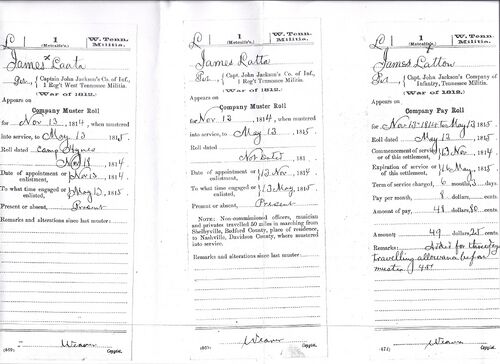 L
1
(Metcalfe's.)
W. Tenn. Militia.
James Laata
Pvt., Captain John Jackson's Co. of Inf.,
1 Reg't West Tennessee Militia.
(War of 1812.)
Appears on
Company Muster Roll
for Nov 13, 1814, when mustered
into service, to May 13 1815
Roll dated Camp Hynes
Nov 13 1814
Date of appointment or enlistment, Nov 13, 1814
To what time engaged or enlisted, May 13, 1815
Present or absent, Present
Remarks and alterations since last muster:
Weaver
Copyist.
L
1
(Metcalfe's.)
W. Tenn. Militia.
James Latta
Pvt., Capt. John Jackson's Co. of Inf.,
1 Reg't Tennessee Militia.
(War of 1812.)
Appears on
Company Muster Roll
for Nov 13, 1814, when mustered
into service, to May 13, 1815.
Roll dated
Not Dated, 181 .
Date of appointment or enlistment, 13 Nov, 1814
To what time engaged or enlisted, 13 May, 1815.
Present or absent, Present
NOTE: Non commissioned officers, musician
and privates travelled 50 miles in marching from
Shelbyville, Bedford County, place of residence,
to Nashville, Davidson County, where mustered
into service.
Remarks and alterations since last muster:
Weaver
Copyist.
L
1
(Metcalfe's.)
W. Tenn. Militia.
James Latton
Pvt, Capt. John Jackson's Company of
Infantry, Tennessee Militia.
(War of 1812.)
Appears on
Company Pay Roll
for Nov 13 1814 to May 13, 1815
Commencement of service or of this settlement, 13 Nov, 1814
Expiration of service or of this settlement, 16 May, 1815
Term of service charged, 6 months 3 days.
Pay per month, 8 dollars, cents
Amount of pay, 48 dollars, 80 cents
Amount, 49 dollars, 25 cents.
Remarks:
travelling allowance before
muster. 45¢
Weaver
(671)
Copyist.